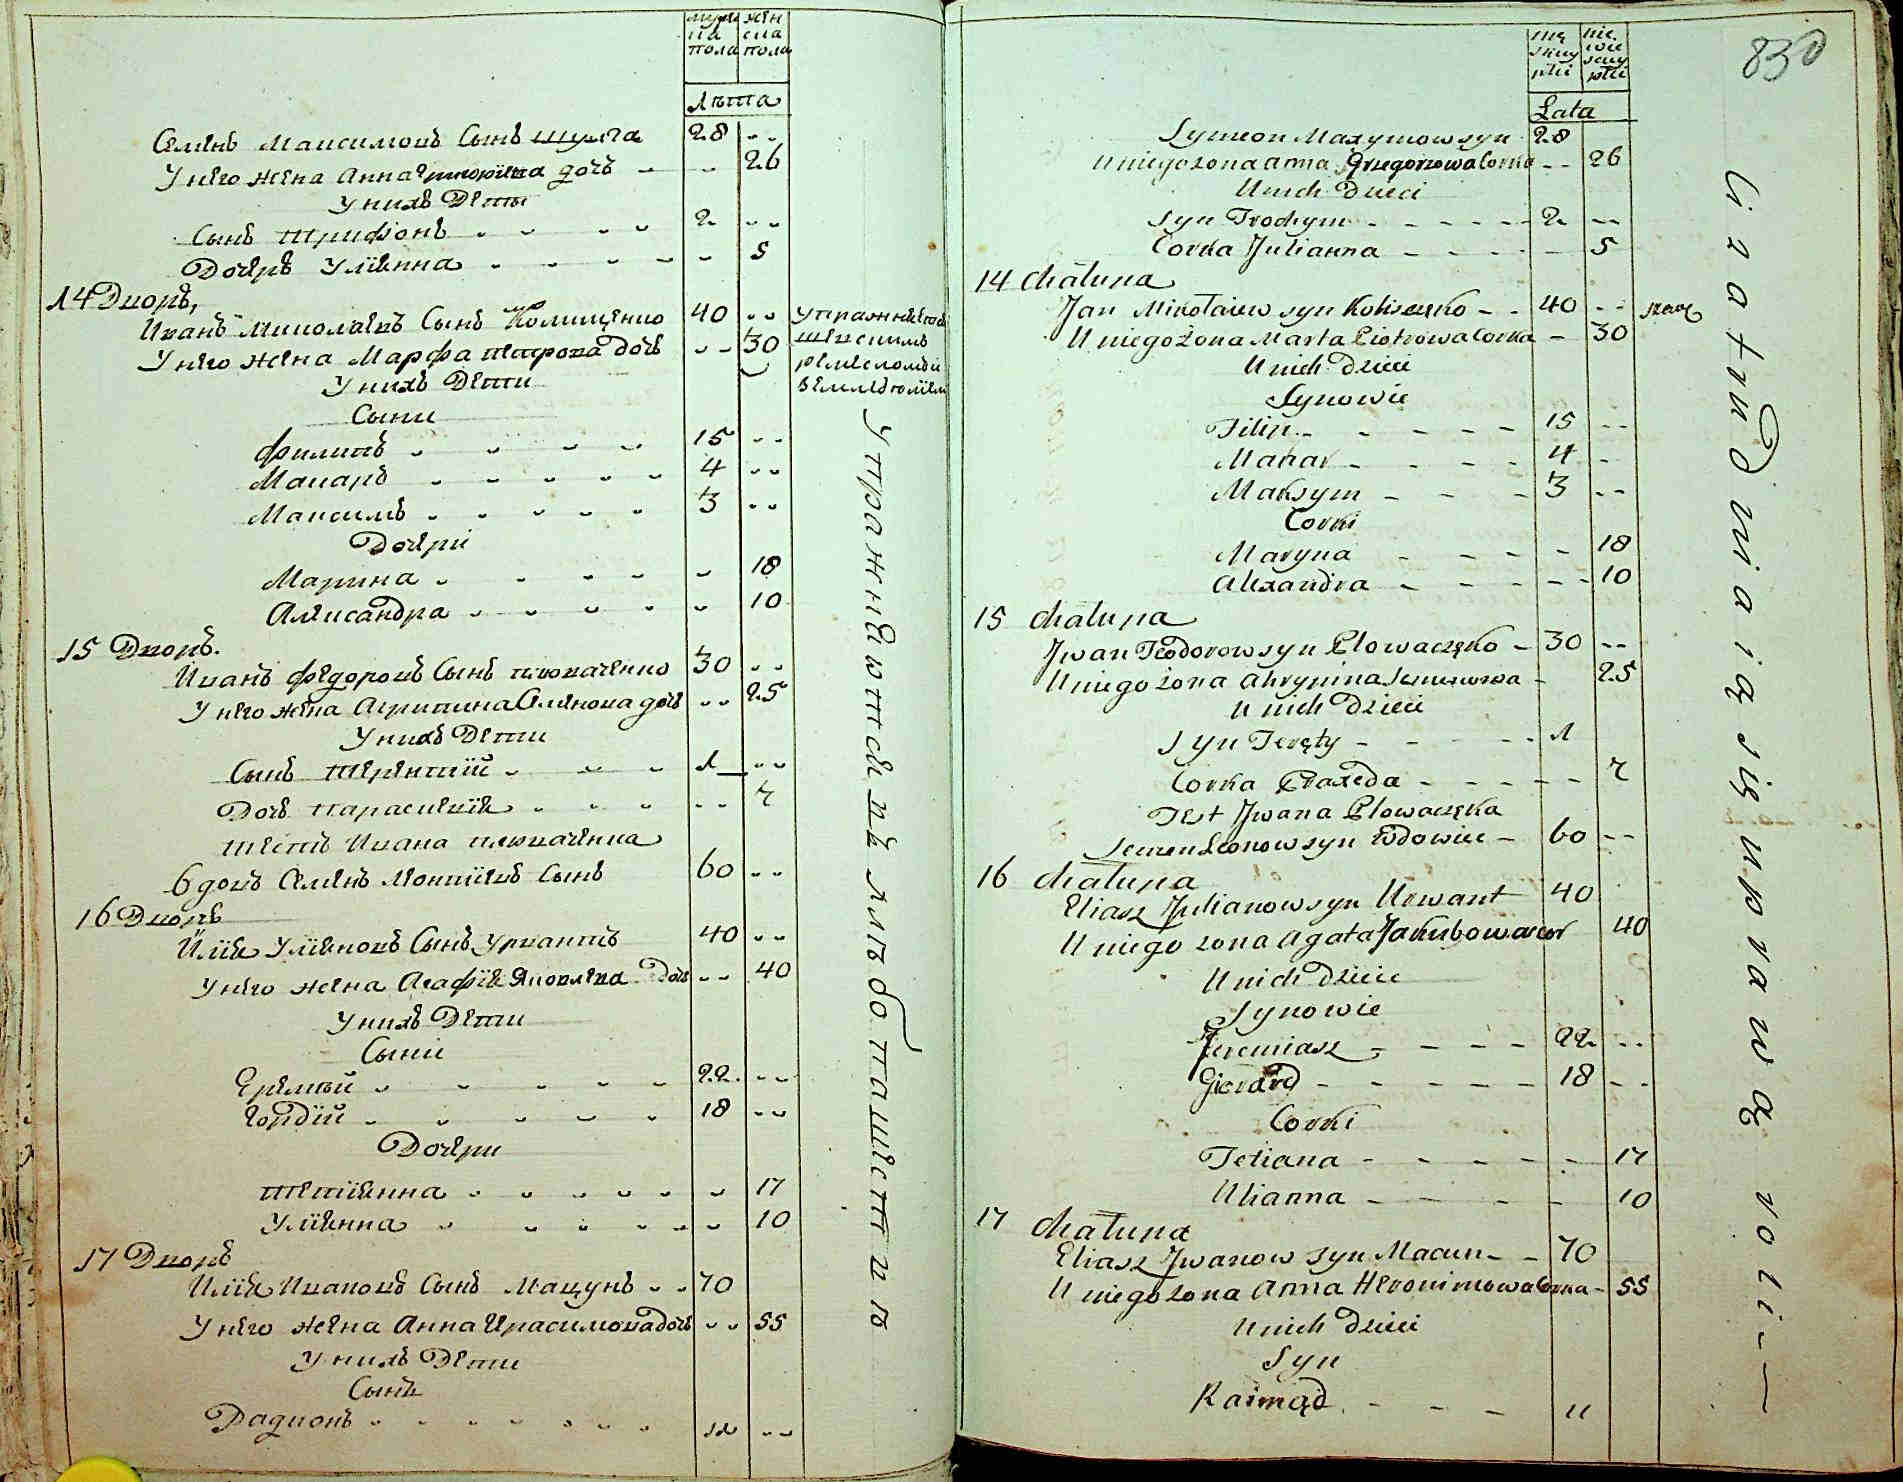 муже жен
на ска
пола пола
лѣта
Семенъ Максимовъ Сынъ Шулга 28
У него жена Анна Григориева дочъ 26
У нихъ Дети
Сынъ Трифонъ 2
Дочеръ Улияна 5
14 Дворъ,
Иванъ Миколаевъ Сынъ Колищенко 40
У него жена Марфа Петрова дочъ 30
У нихъ Дети
Сыни
Филипъ 15
Макаръ 4
Максимъ 3
Дочери
Марина 18
Александра 10
15 Дворъ.
Иванъ Федоровъ Сынъ Пловаченко 30
У него жена Агрипина Семенова дочъ 25
У нихъ Дети
Сынъ Терентий 1
Дочъ Параскевия 7
тесть Ивана Пловаченка
вдовъ Семенъ Леонтиевъ Сынъ 60
16 Дворъ
Илия Улияновъ Сынъ Урвантъ 40
У него жена Агафия Яковлева Дочъ 40
У нихъ Дети
Сыни
Еремей 22
Гордий 18
Дочери
Тетиянна 17
Улиянна 10
17 Дворъ
Илия Ивановъ Сынъ Мацунъ 70
У него жена Анна Ирасимова дочъ 55
У нихъ Дети
Сынъ
Радионъ 11
упражняется
шевскимъ
ремесломъ и
земледелием
Упражняются въ хлѣбопашество
mę skiey płci
nie wie sciey płci
Lata
830
Symeon Maxymow syn 28
U niego zona Anna Grzegorzowa Corka 26
U nich Dzieci
Syn Trochym 2
Corka Julianna 5
14 chałupa
Jan Mikołaiew syn Koliszczęko 40 szewc
U niego żona Marta Piotrowa Corka 30
U nich Dzieci
Synowie
Filip 15
Makar 4
Maksym 3
Corki
Maryna 18
Alexandra 10
15 chałupa
Jwan Teodorow syn Plowaczęko 30
U niego żona Ahrypina Semenowa 25
U nich Dzieci
Syn Teręty 1
Corka Praxeda 7
Test Jwana Plowaczęka
Semen Leonow syn Wdowiec 60
16 chałupa
Eliasz Julianow syn Urwant 40
U niego zona Agata Jakubowa cor 40
U nich Dzieci
Synowie
Jeremiasz 22
Gierard 18
Corki
Tetiana 17
Ulianna 10
17 chałupa
Eliasz Jwanow syn Macun 70
U niego zona Anna Heronimowa Corka 55
U nich Dzieci
Syn
Raimąd 11
U zatrudniaią się uprawą roli